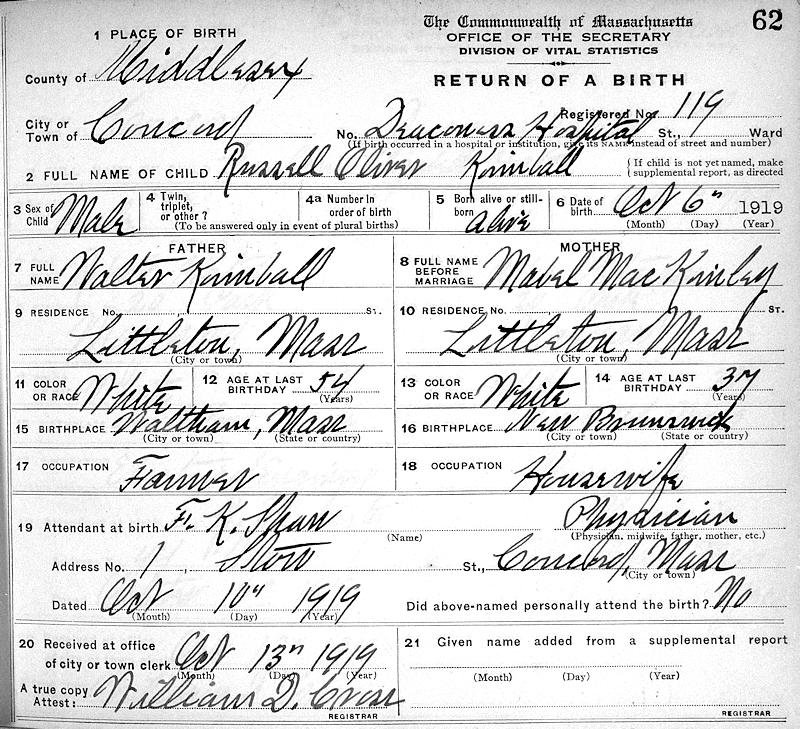 62
The Commonwealth of Massachusetts
OFFICE OF THE SECRETARY
DIVISION OF VITAL STATISTICS
RETURN OF A BIRTH
1 PLACE OF BIRTH
County of Middlesex
Registered No. 119
City or Town of Concord No. Deaconess Hospital St., Ward
(If birth occurred in a hospital or institution, give its NAME instead of street and number)
2 FULL NAME OF CHILD Russell Oliver Kimball {If child is not yet named, make supplemental report, as directed
3 Sex of Child Male 4 Twin, triplet, or other? 4a Number in order of birth 5 Born alive or still-born alive 6 Date of birth Oct 6" 1919
(To be answered only in event of plural births) (Month) (Day) (Year)
FATHER MOTHER
7 FULL NAME Walter Kimball 8 FULL NAME BEFORE MARRIAGE Mabel MacKinley
9 RESIDENCE No. St. 10 RESIDENCE No. St.
Littleton, Mass Littleton, Mass
(City or town) (City or town)
11 COLOR OR RACE White 12 AGE AT LAST BIRTHDAY 54 13 COLOR OR RACE White 14 AGE AT LAST BIRTHDAY 37
(Years) (Years)
15 BIRTHPLACE Waltham, Mass 16 BIRTHPLACE New Brunswick
(City or town) (State or country) (City or town) (State or country)
17 OCCUPATION Farmer 18 OCCUPATION Housewife
19 Attendant at birth F. K. Shaw Physician
(Name) (Physician, midwife, father, mother, etc.)
Address No. St., Concord, Mass
(City or town)
Dated Oct 10" 1919 Did above-named personally attend the birth? No
(Month) (Day) (Year)
20 Received at office of city or town clerk Oct 13" 1919 21 Given name added from a supplemental report
(Month) (Day) (Year) (Month) (Day) (Year)
A true copy Attest: William D. Cross
REGISTRAR REGISTRAR